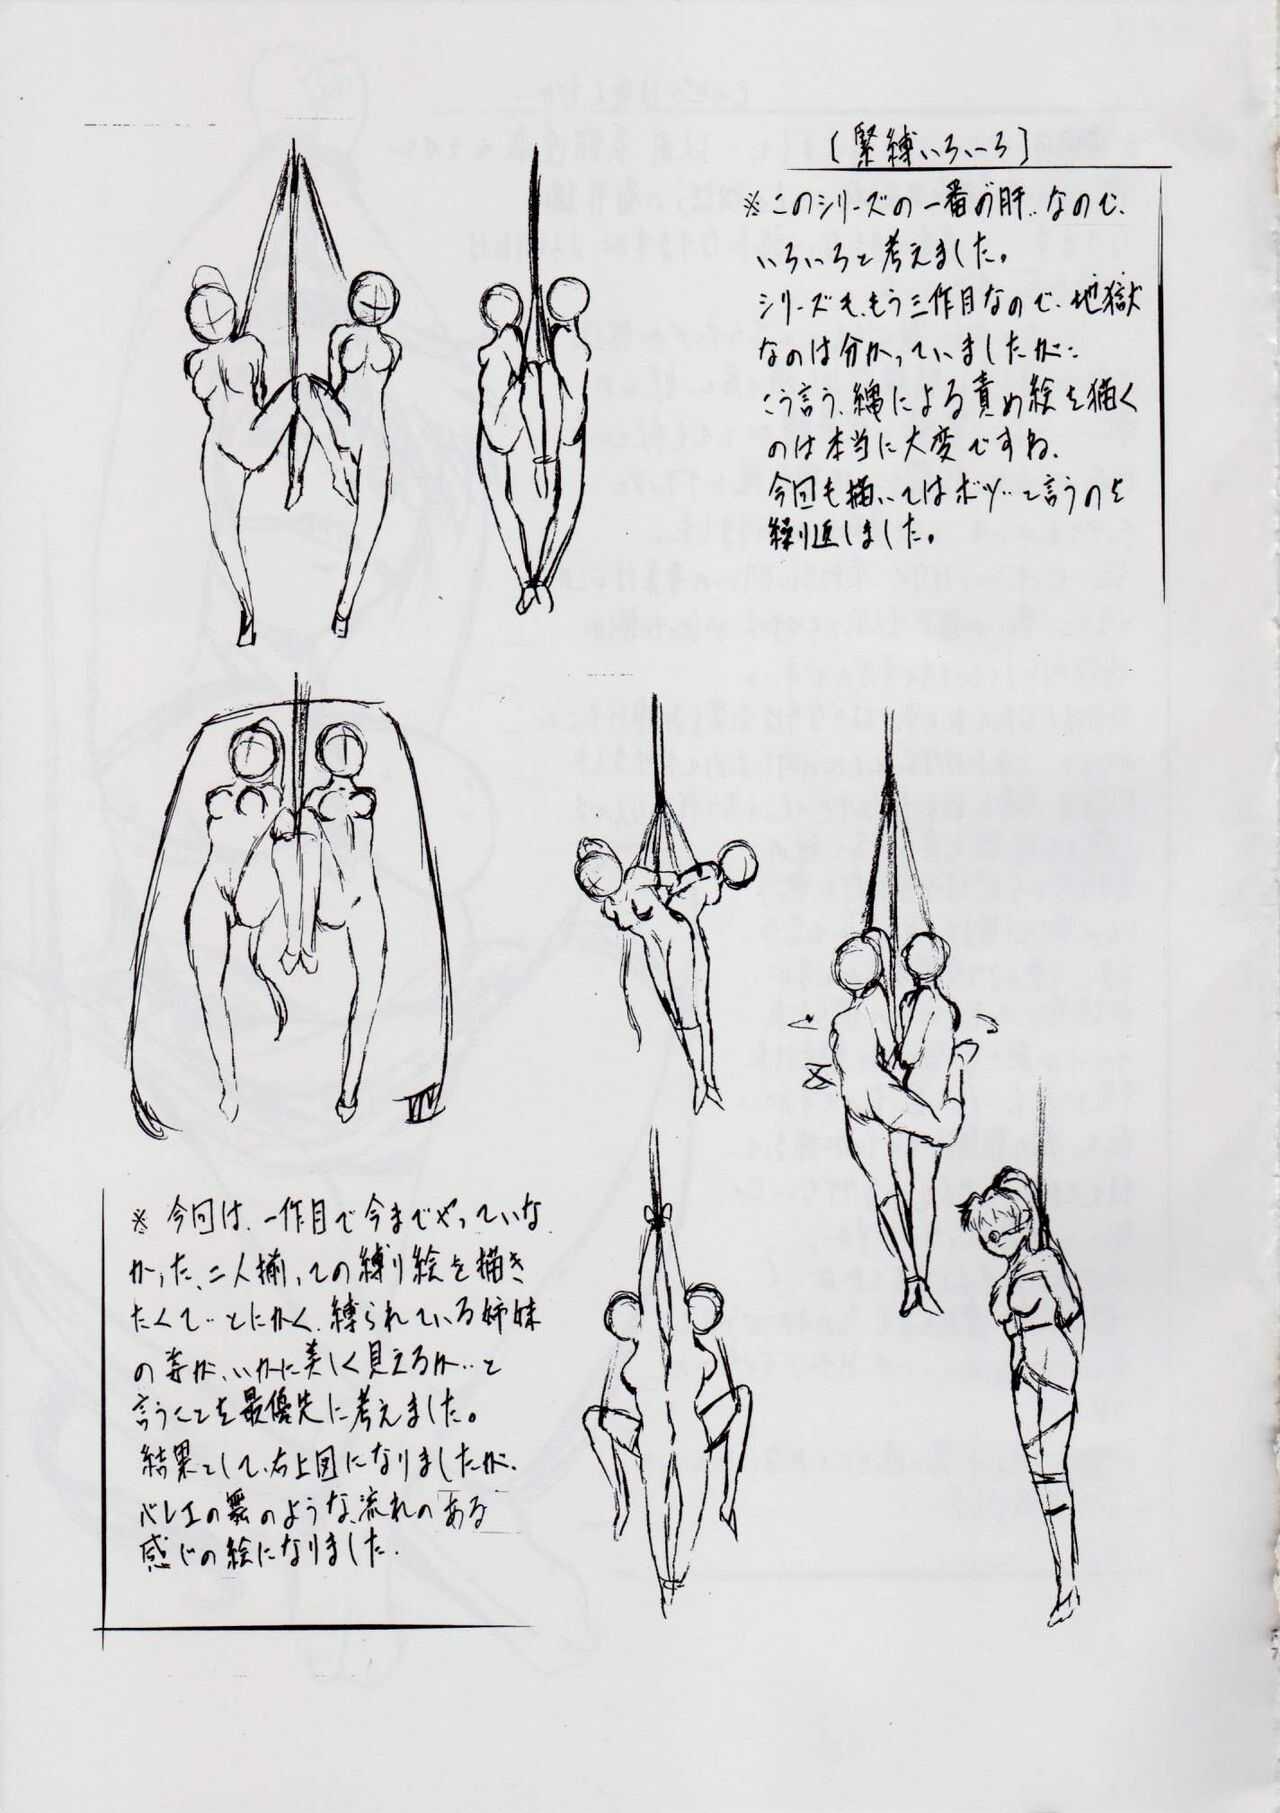 【緊縛いろいろ】
※このシリーズの一番の肝‥なので、
いろいろと考えました。
シリーズも、もう三作目なので、地獄
なのは分かっていましたが‥
こう言う、縄による責め絵を描く
のは本当に大変ですね、
今回も描いてはボツ‥と言うのを
繰り返しました。
※今回は、一作目で今までやっていな
かった、二人揃っての縛り絵を描き
たくて‥とにかく、縛られている姉妹
の姿が、いかに美しく見えるか‥と
言うことを最優先に考えました。
結果として、右上図になりましたが、
バレエの舞のような、流れのある
感じの絵になりました.